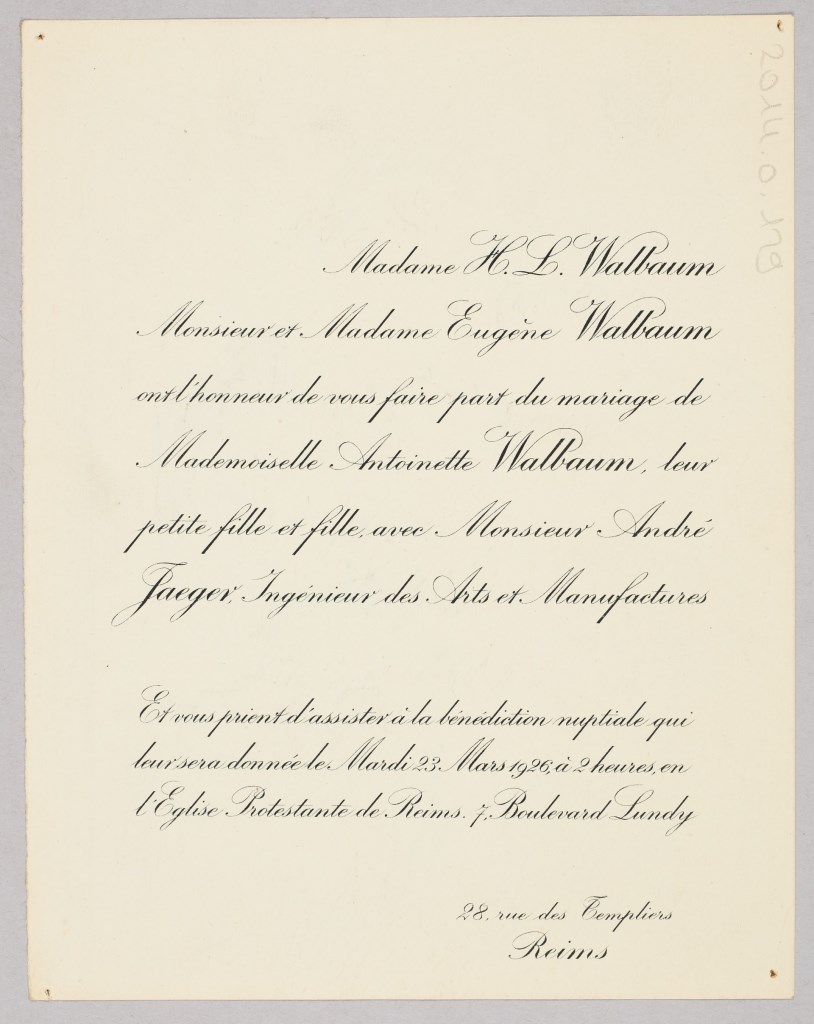 Madame H. L. Walbaum
Monsieur et Madame Eugène Walbaum
ont l'honneur de vous faire part du mariage de
Mademoiselle Antoinette Walbaum, leur
petite fille et fille, avec Monsieur André
Jaeger, Ingénieur des Arts et Manufactures
Et vous prient d'assister à la bénédiction nuptiale qui
leur sera donnée le Mardi 23 Mars 1926, à 2 heures, en
l'Eglise Protestante de Reims. 7, Boulevard Lundy
28. rue des Templiers
Reims